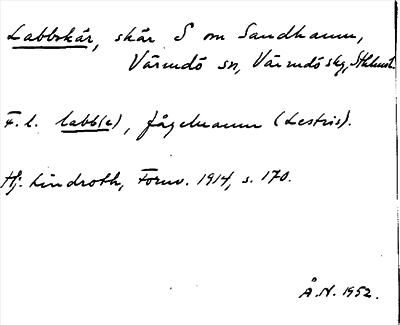 Labbskär, skär S om Sandhamn,
Värmdö sn, Värmdö skg, Sthlms l.
F. l. labb(e), fågelnamn (Lestris).
Hj. Lindroth, Fornv. 1914, s. 170.
Å.N. 1952.